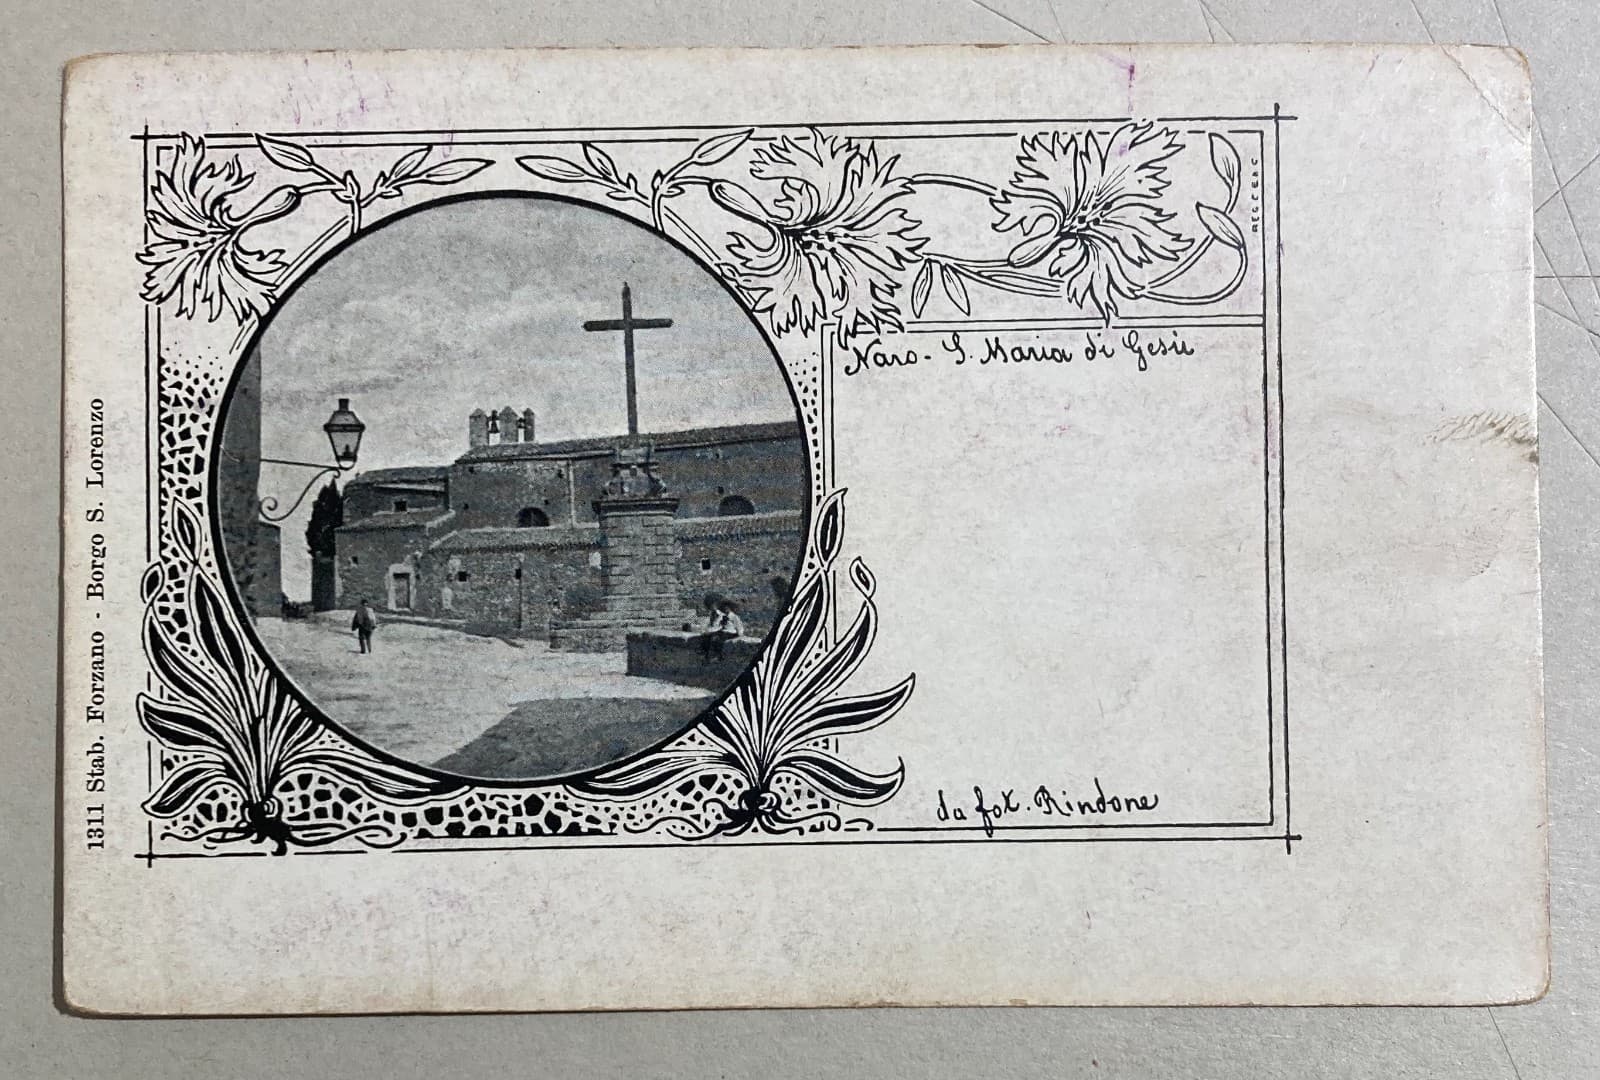 Naro - S. Maria di Gesù
da fot. Rindone
1311 Stab. Forzano - Borgo S. Lorenzo